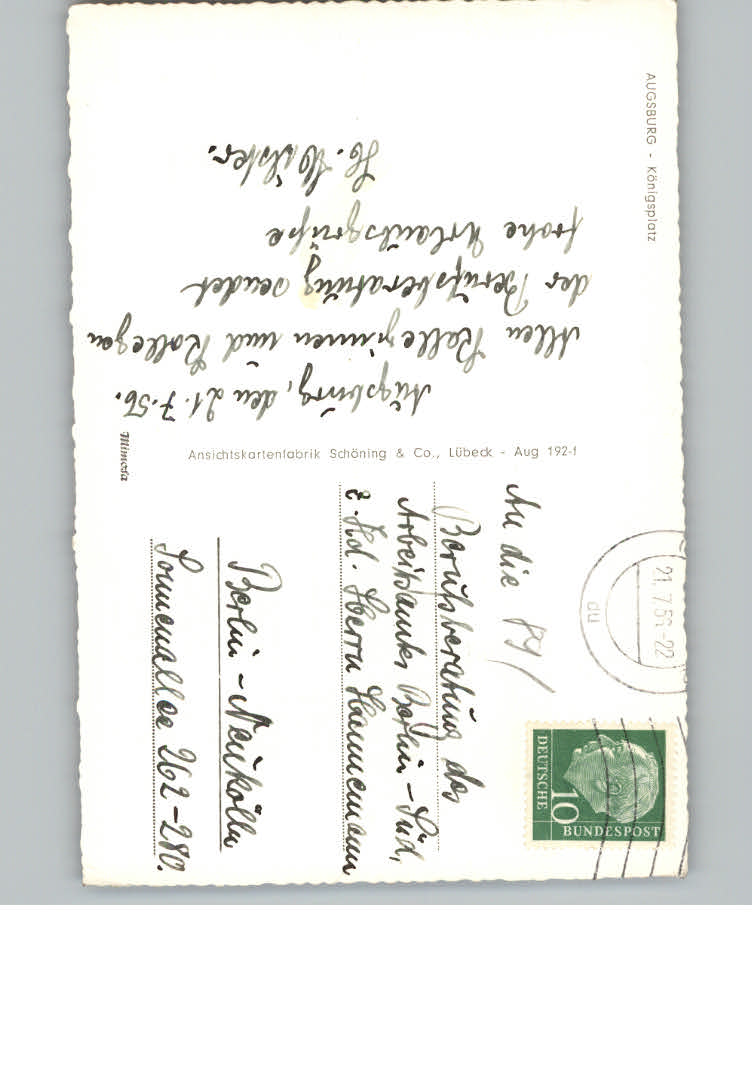 AUGSBURG - Königsplatz
Augsburg, den 21.7.56.
Allen Kolleginnen und Kollegen
der Berufsberatung sendet
frohe Urlaubsgrüße
H.
Mimosa
Ansichtskartenfabrik Schöning & Co., Lübeck - Aug 192-f
An die
Berufsberatung des
Arbeitsamtes Berlin-Süd,
z. Hd. Herrn Hannemann
Berlin-Neukölln
Sonnenallee 262-280.
21.7.56-22
au
DEUTSCHE
10
BUNDESPOST